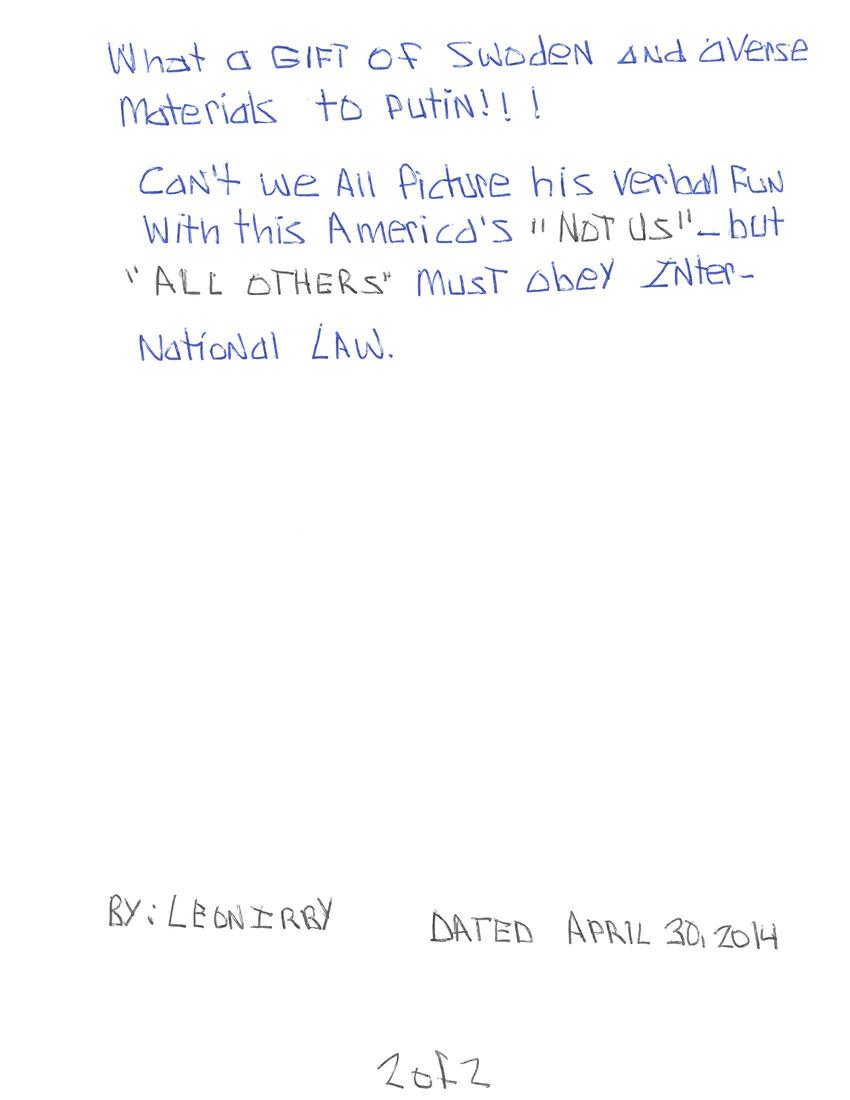 What a GIFT OF SwodeN aNd averse
Materials to putiN!!!
CaN't we All Picture his verbal FuN
With this America's "NOT US" - but
"ALL OTHERS" MusT obey INter-
NatioNal LAW.
BY: LEON IRBY DATED APRIL 30, 2014
2 of 2